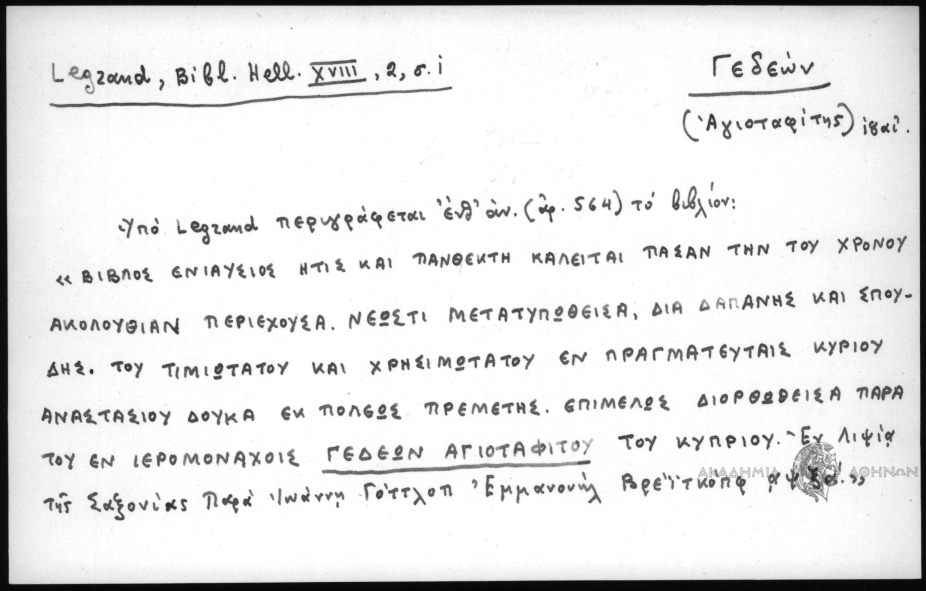 Legrand, Bibl. Hell. XVIII, 2, σ. i
Γεδεών
(Ἁγιοταφίτης) ἱσαῖ.
Ὑπό Legrand περιγράφεται ἐνθ' ἀν. (ἀρ. 564) τό βιβλίον:
« ΒΙΒΛΟΣ ΕΝΙΑΥΣΙΟΣ ΗΤΙΣ ΚΑΙ ΠΑΝΘΕΚΤΗ ΚΑΛΕΙΤΑΙ ΠΑΣΑΝ ΤΗΝ ΤΟΥ ΧΡΟΝΟΥ
ΑΚΟΛΟΥΘΙΑΝ ΠΕΡΙΕΧΟΥΣΑ. ΝΕΩΣΤΙ ΜΕΤΑΤΥΠΩΘΕΙΣΑ, ΔΙΑ ΔΑΠΑΝΗΣ ΚΑΙ ΣΠΟΥ-
ΔΗΣ. ΤΟΥ ΤΙΜΙΩΤΑΤΟΥ ΚΑΙ ΧΡΗΣΙΜΩΤΑΤΟΥ ΕΝ ΠΡΑΓΜΑΤΕΥΤΑΙΣ ΚΥΡΙΟΥ
ΑΝΑΣΤΑΣΙΟΥ ΔΟΥΚΑ ΕΚ ΠΟΛΕΩΣ ΠΡΕΜΕΤΗΣ. ΕΠΙΜΕΛΩΣ ΔΙΟΡΘΩΘΕΙΣΑ ΠΑΡΑ
ΤΟΥ ΕΝ ΙΕΡΟΜΟΝΑΧΟΙΣ ΓΕΔΕΩΝ ΑΓΙΟΤΑΦΙΤΟΥ ΤΟΥ ΚΥΠΡΙΟΥ. Ἐν Λιψίᾳ
τῆς Σαξονίας Παρά Ἰωάννῃ Γόττλοπ Ἐμμανουήλ Βρεϊτκόπφ ͵αψξα´.»
ΑΚΑΔΗΜΙΑ ΑΘΗΝΩΝ